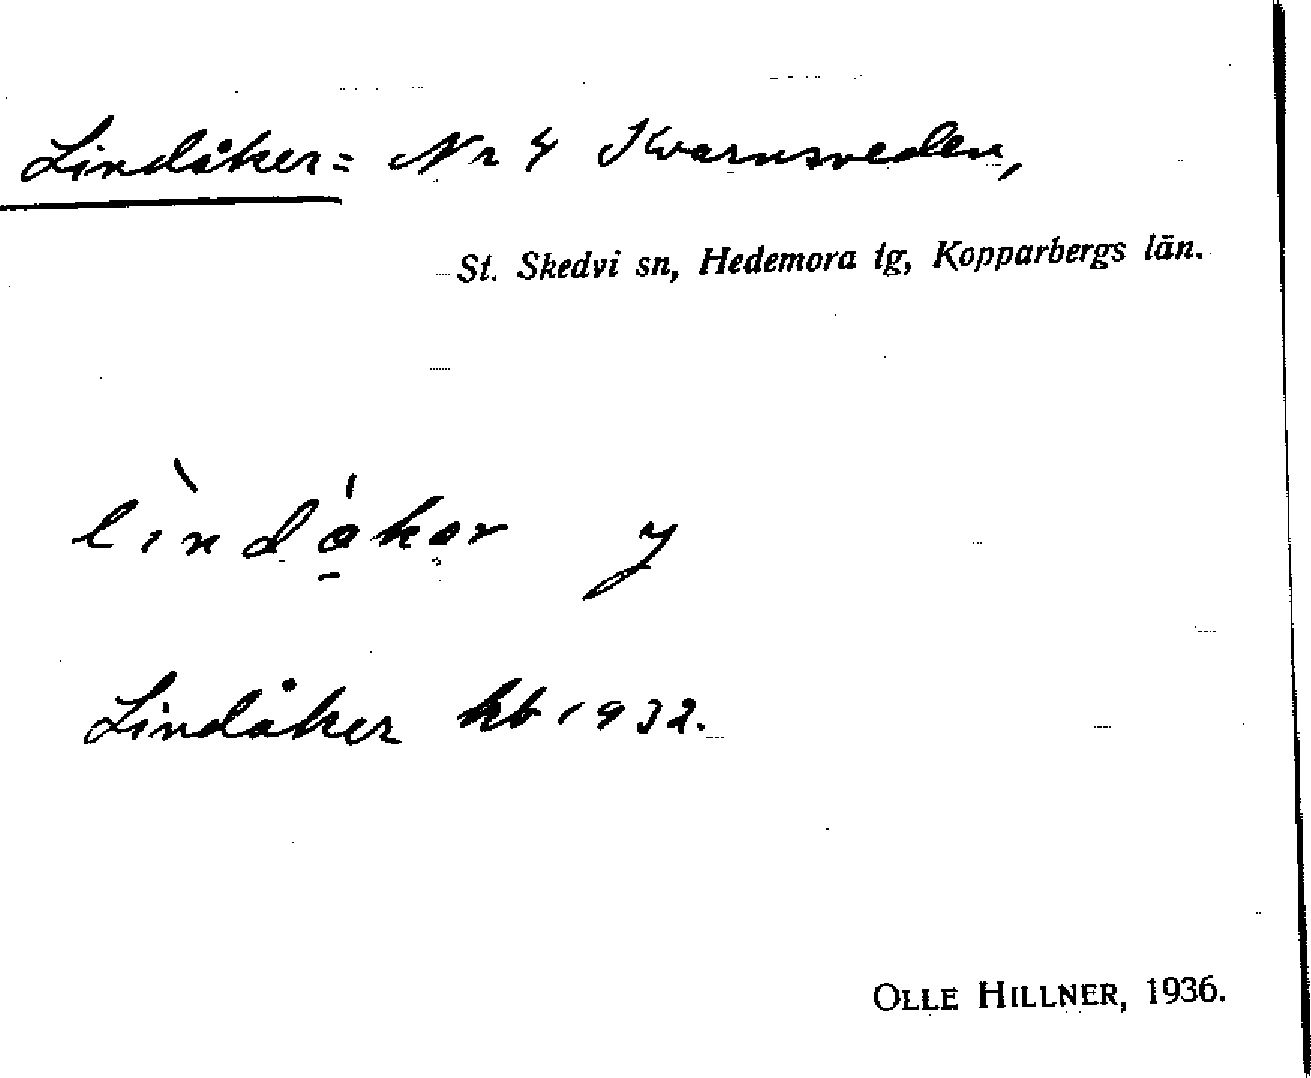 Lindåker = Nr 4 Kvarnsveden,
St. Skedvi sn, Hedemora tg, Kopparbergs län.
lìndákər
Lindåker kb 1932.
OLLE HILLNER, 1936.